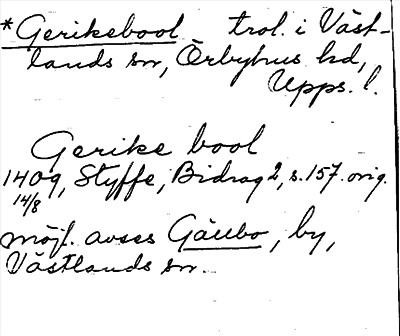 *Gerikebool trol. i Väst-
lands sn, Örbyhus hd,
Upps. l.
Gerike bool
1409, Styffe, Bidrag 2, s. 157. orig.
14/8
möjl. avses Gällbo, by,
Västlands sn.